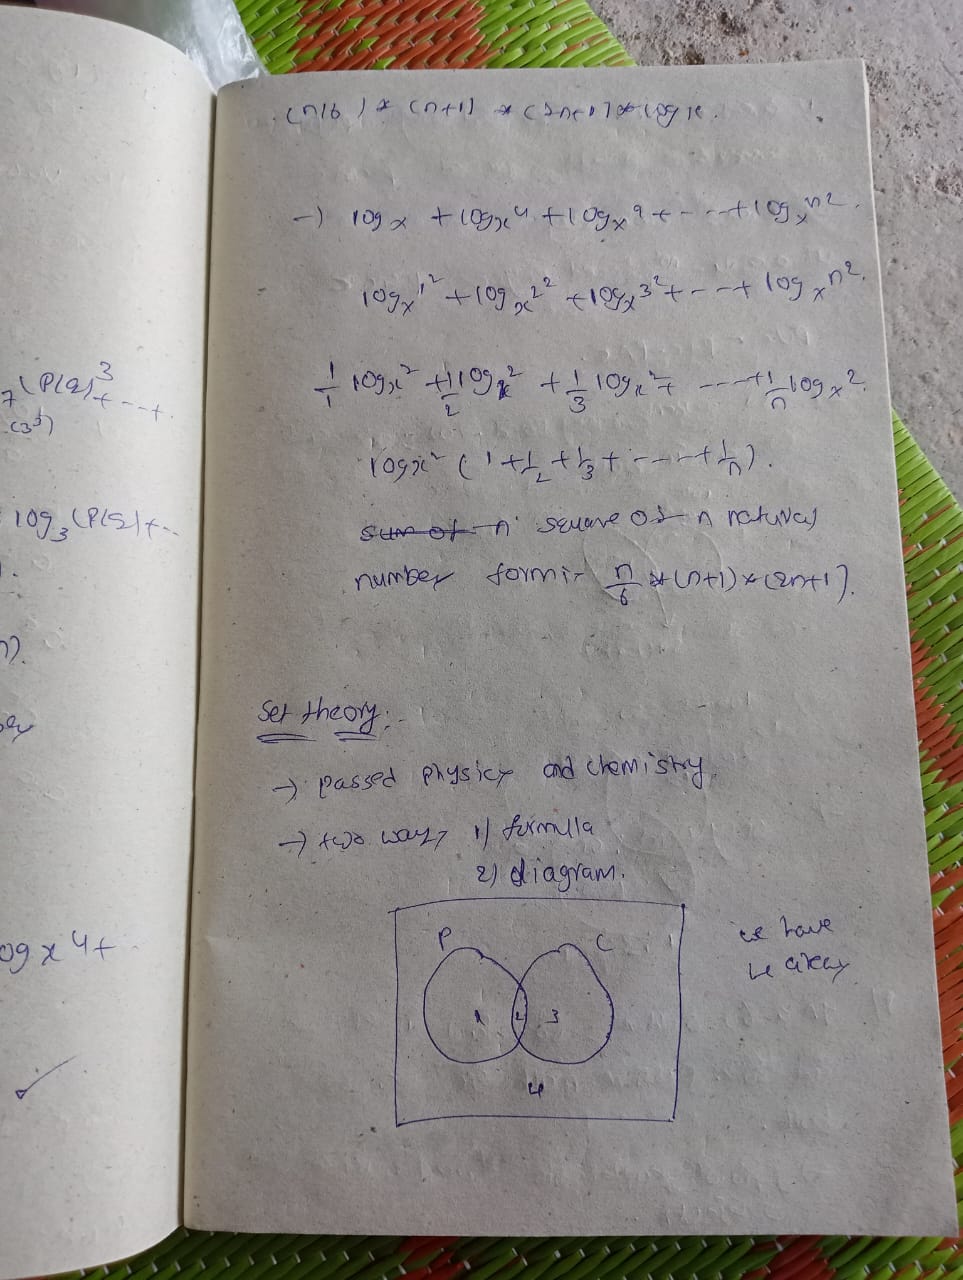 7 (P/q)³ + - - - + .
(3³)
log₃ (P/q) + - .
og x 4 +
(n/6) * (n+1) * (2n+1) * log x.
→ log x + log x⁴ + log x⁹ + - - - + log xⁿ².
log x¹² + log x²² + log x³² + - - - + log xⁿ².
1/1 log x² + 1/2 log x² + 1/3 log x² + - - - + 1/n log x².
log x² (1 + 1/2 + 1/3 + - - - + 1/n).
sum of n square of n natural
number form:- n/6 * (n+1) * (2n+1).
Set theory:-
→ passed physics and chemistry.
→ two ways 1) formulla
2) diagram.
P C
we have
4 areas
1 2 3
4